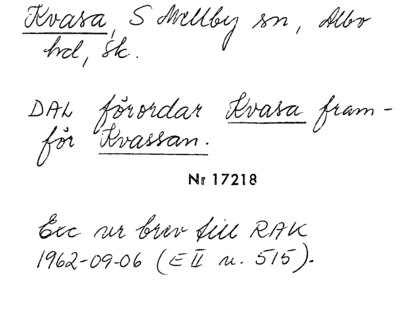 Kvasa, S Mellby sn, Albo
hd, Sk.
DAL förordar Kvasa fram-
för Kvassan.
Nr 17218
Exc ur brev till RAK
1962-09-06 (E II u. 515).